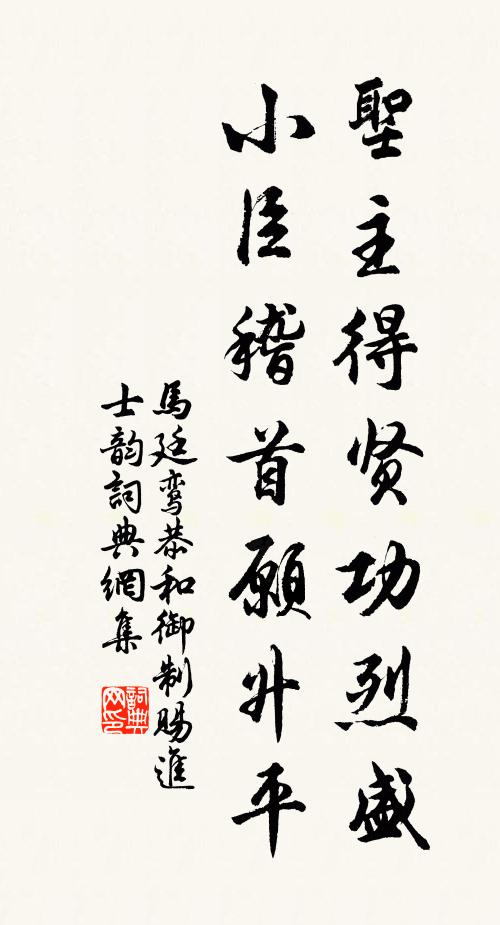 聖主得贤功烈盛
小臣稽首願升平
馬廷鸾恭和御制賜進
士韵詞典網集
詞典网印